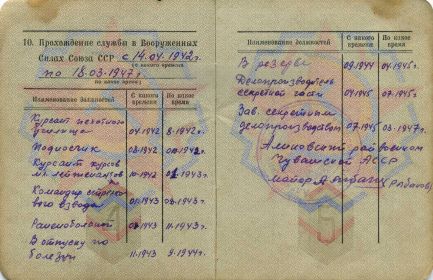 10. Прохождение службы в Вооруженных
Силах Союза ССР с 14.04.1942г.
(с какого времени
по 18.03.1947г.
по какое время)
Наименование должностей
С какого времени
По какое время
Курсант пехотного
училища 04.1942 8.1942г.
Подносчик 08.1942
Курсант курсов
мл. лейтенантов 10.1942 1943г.
Командир
взвода 1943г.
Раненобольной 1943г.
В отпуску по
болезни 11.1943 9.1944г.
Наименование должностей
С какого времени
По какое время
В резерве 09.1944 04.1945г.
Делопроизводитель
секретной части 04.1945 07.1945г.
Зав. секретным
делопроизводством 07.1945 03.1947г.
райвоенком
Чувашской АССР
майор